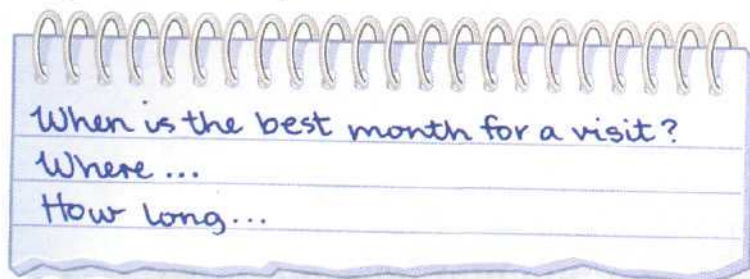 When is the best month for a visit?
Where ...
How long...